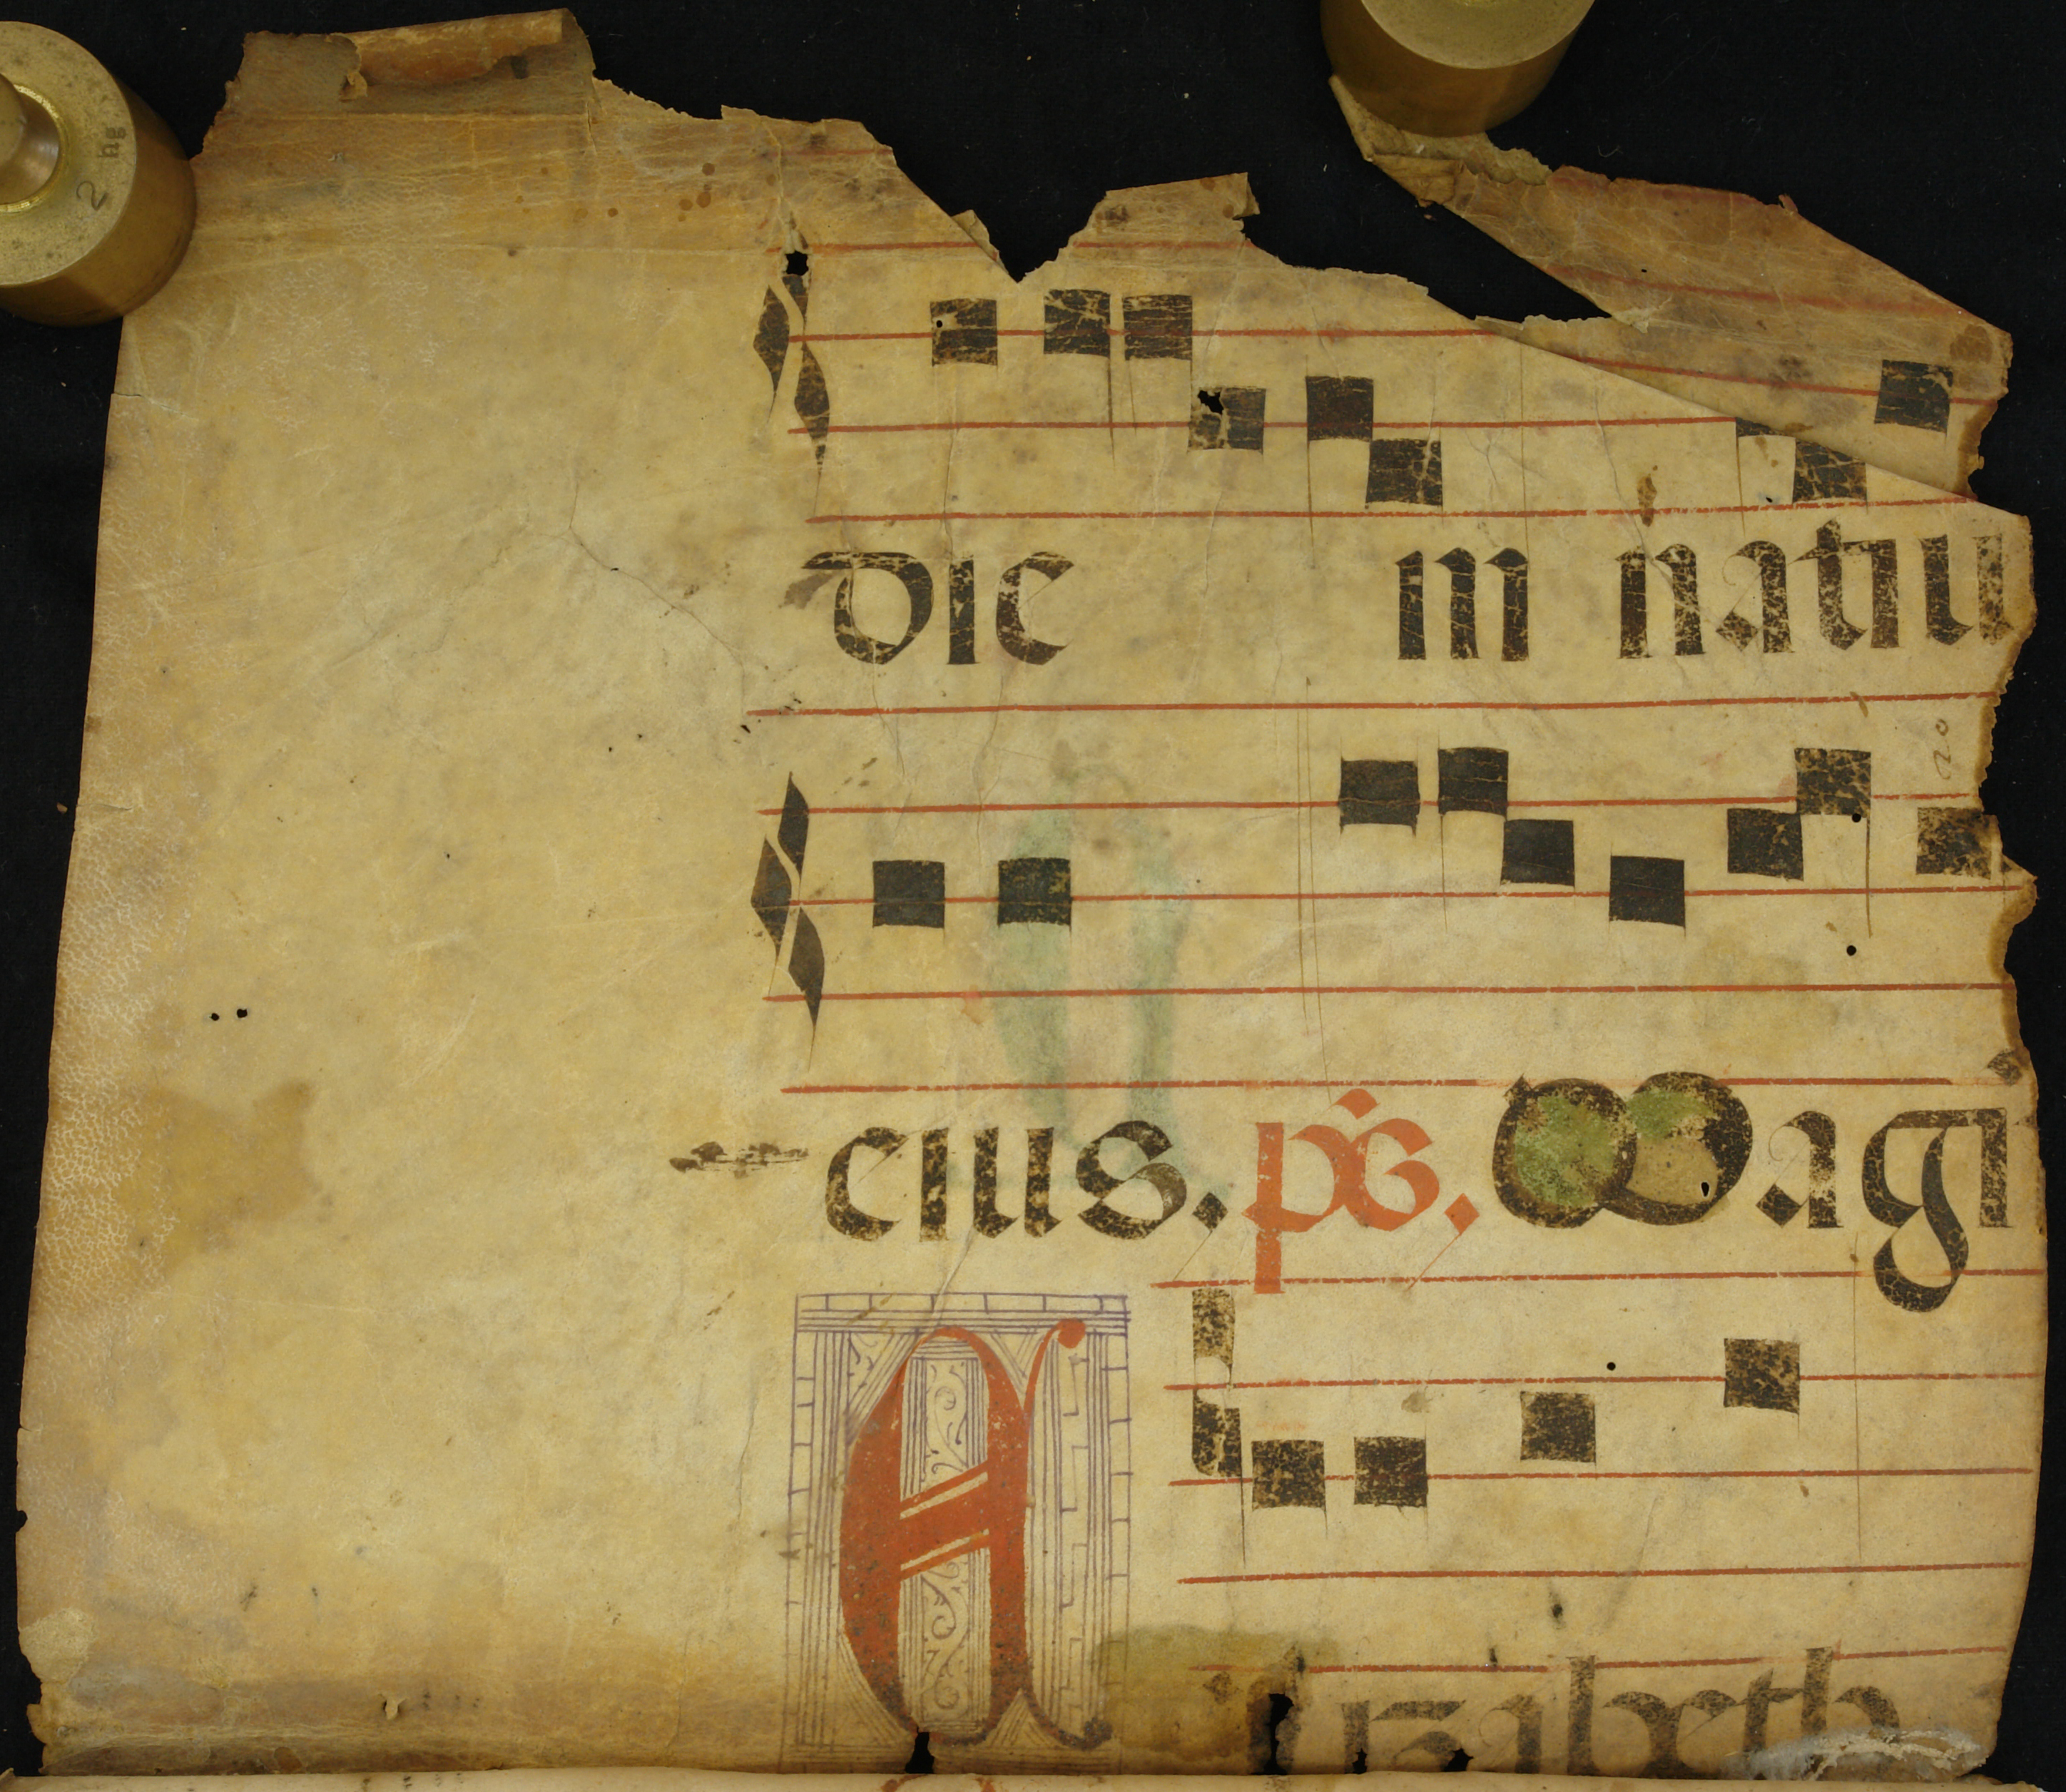 2 hg
dic in natiu
20
eius. ps. Magi
A
lizabeth